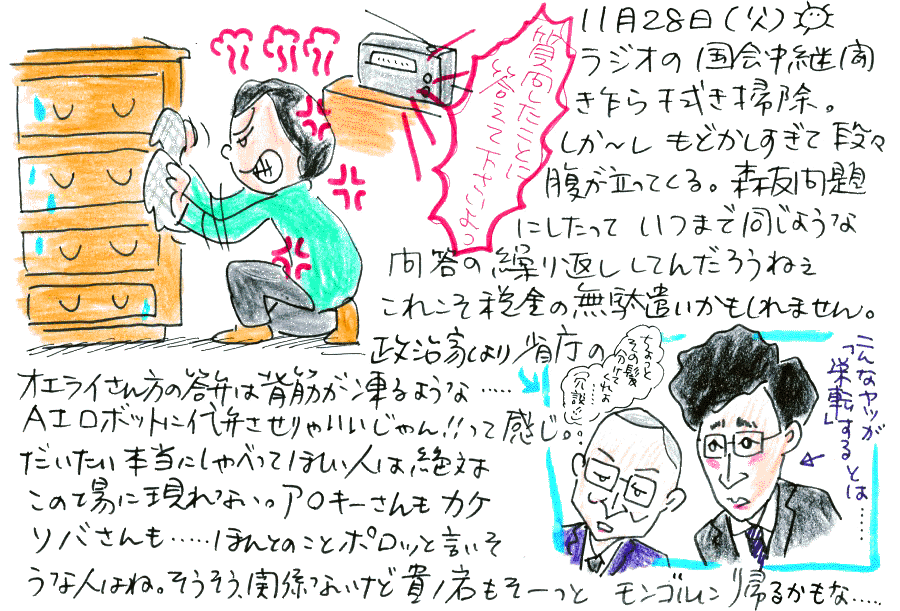 11月28日(火)
ラジオの国会中継聞
き乍ら干拭き掃除。
しか〜し もどかしすぎて段々
腹が立ってくる。森友問題
にしたって いつまで同じような
問答の繰り返ししてんだろうねぇ
これこそ税金の無駄遣いかもしれません。
政治家より省庁の
オエライさん方の答弁は背筋が凍るような……
AIロボットに代弁させりゃいいじゃん!!って感じ。。
だいたい本当にしゃべってほしい人は絶対
この場に現れない。アッキーさんもカケ
ソバさんも……ほんとのことポロッと言いそ
うな人はね。そうそう、関係ないけど貴ノ岩もそーっと モンゴルに帰るかもな……
質問したことに
答えて下さいよっ
ちょっと
その髪
分けて
くれよ
(冗談)
こんなヤツが
「栄転」する
とは……